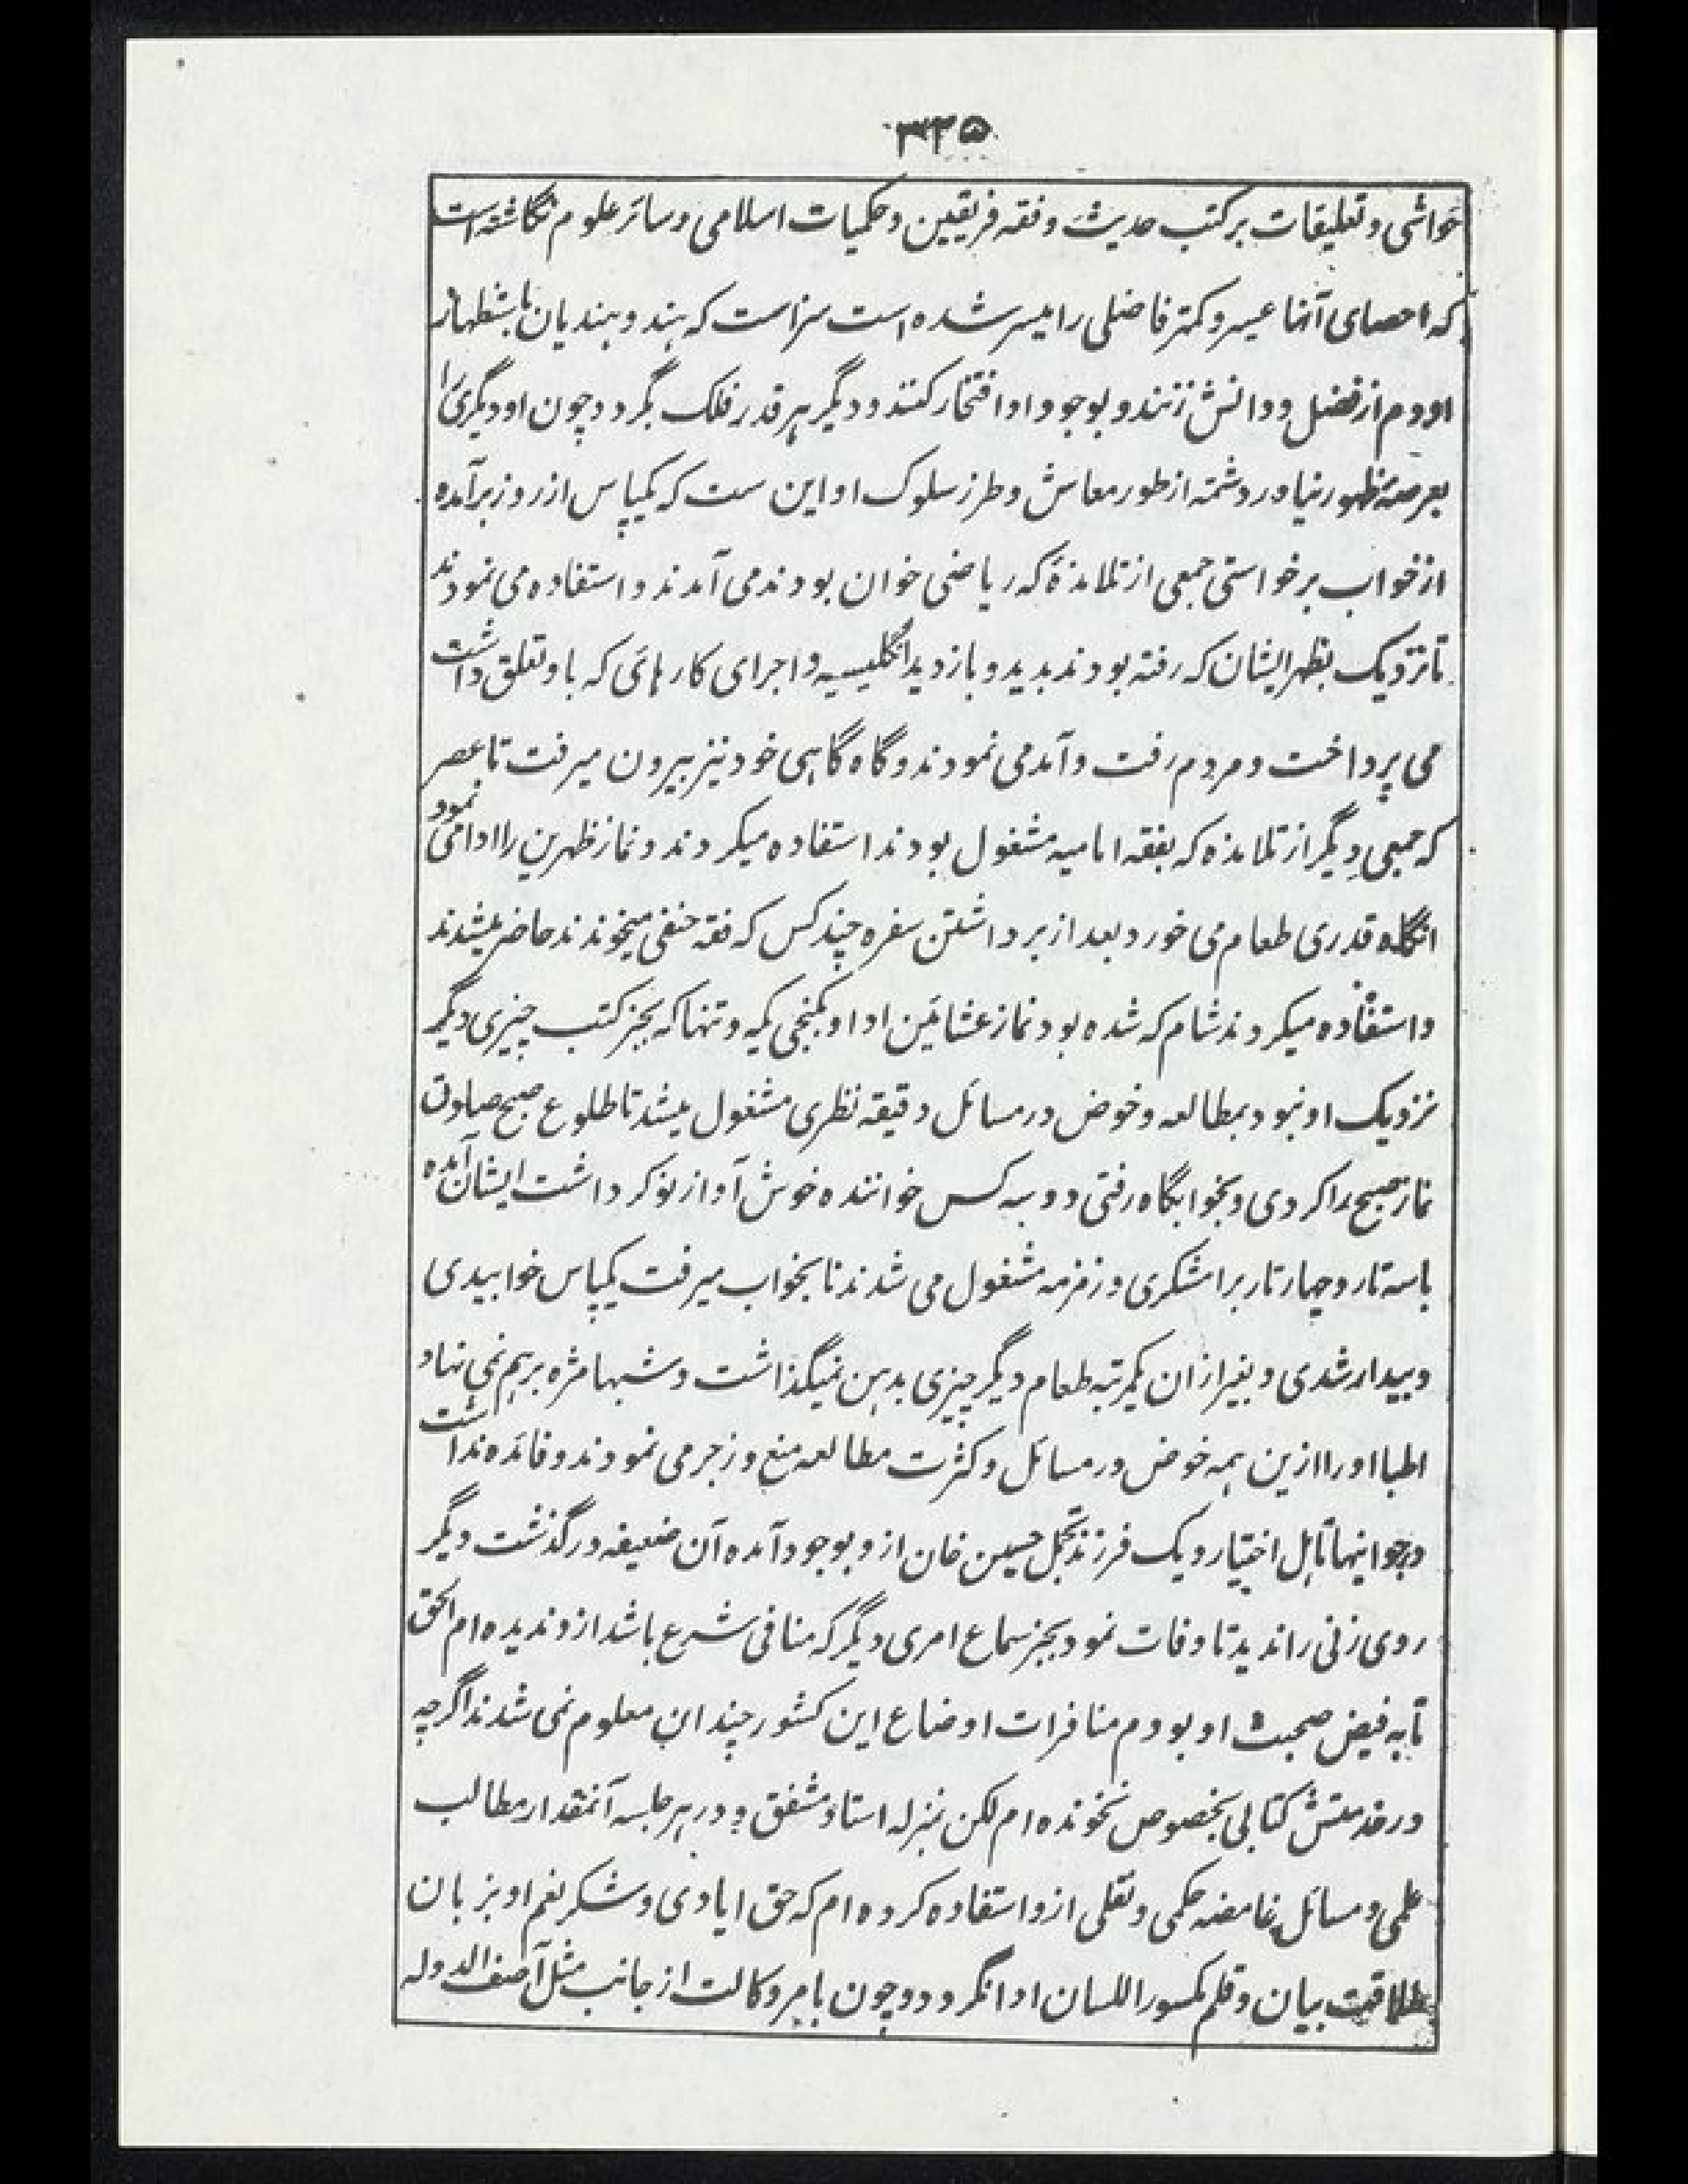 ۳۲۵
حواشی و تعلیقات بر کتب حدیث و فقه فریقین و حکمیات اسلامی و سائر علوم نگاشته است
که احصای آنها عسیر و کمتر فاضلی را میسر شده است سزاست که هند و هندیان باستظهار
او دم از فضل و دانش زنند و بوجود او افتخار کنند و دیگر هر قدر فلک بگردد چون او دیگری را
بعرصۀ ظهور نیاورد شمۀ از طور معاش و طرز سلوک او این ست که یکپاس از روز برآمده
از خواب برخواستی جمعی از تلامذۀ که ریاضی خوان بودند می آمدند و استفاده می نمودند
تا نزدیک بظهر ایشان که رفته بودند بدید و بازدید انگلیسیه و اجرای کارهائی که باو تعلق داشت
می پرداخت و مردم رفت و آمد می نمودند و گاه گاهی خود نیز بیرون میرفت تا عصر
که جمعی دیگر از تلامذه که بفقه امامیه مشغول بودند استفاده میکردند و نماز ظهرین را ادا می نمود
انگاه قدری طعام می خورد بعد از برداشتن سفره چند کس که فقه حنفی میخوندند حاضر میشدند
و استفاده میکردند شام که شده بود نماز عشائین ادا و بکنجی یکه و تنها که بجز کتب چیزی دیگر
نزدیک او نبود بمطالعه و خوض در مسائل دقیقه نظری مشغول میشد تا طلوع صبح صادق
نماز صبح ادا کردی و بخوابگاه رفتی دو سه کس خواننده خوش آواز نوکر داشت ایشان آمده
با سه تار و چهار تار برامشکری و زمزمه مشغول می شدند تا بخواب میرفت یکپاس خوابیدی
و بیدار شدی و بغیر از ان یکمرتبه طعام دیگر چیزی بدهن نمیگذاشت و شبها مژه برهم نمی نهاد
اطبا او را ازین همه خوض در مسائل و کثرت مطالعه منع و زجر می نمودند و فائده نداشت
در جوانیها تاهل اختیار و یک فرزند تجمل حسین خان ازو بوجود آمده آن ضعیفه درگذشت دیگر
روی زنی را ندید تا وفات نمود بجز سماع امری دیگر که منافی شرع باشد ازو ندیده ام الحق
تا به فیض صحبت او بودم منافرات اوضاع این کشور چندان معلوم نمی شدند اگرچه
در خدمتش کتابی بخصوص نخونده ام لکن بمنزله استاد مشفق و در هر جلسه آنمقدار مطالب
علمی و مسائل غامضه حکمی و نقلی ازو استفاده کرده ام که حق ایادی و شکر نعم او بزبان
طلاقت بیان و قلم مکسور اللسان ادا نگردد و چون بامر وکالت از جانب مثل آصف الدوله